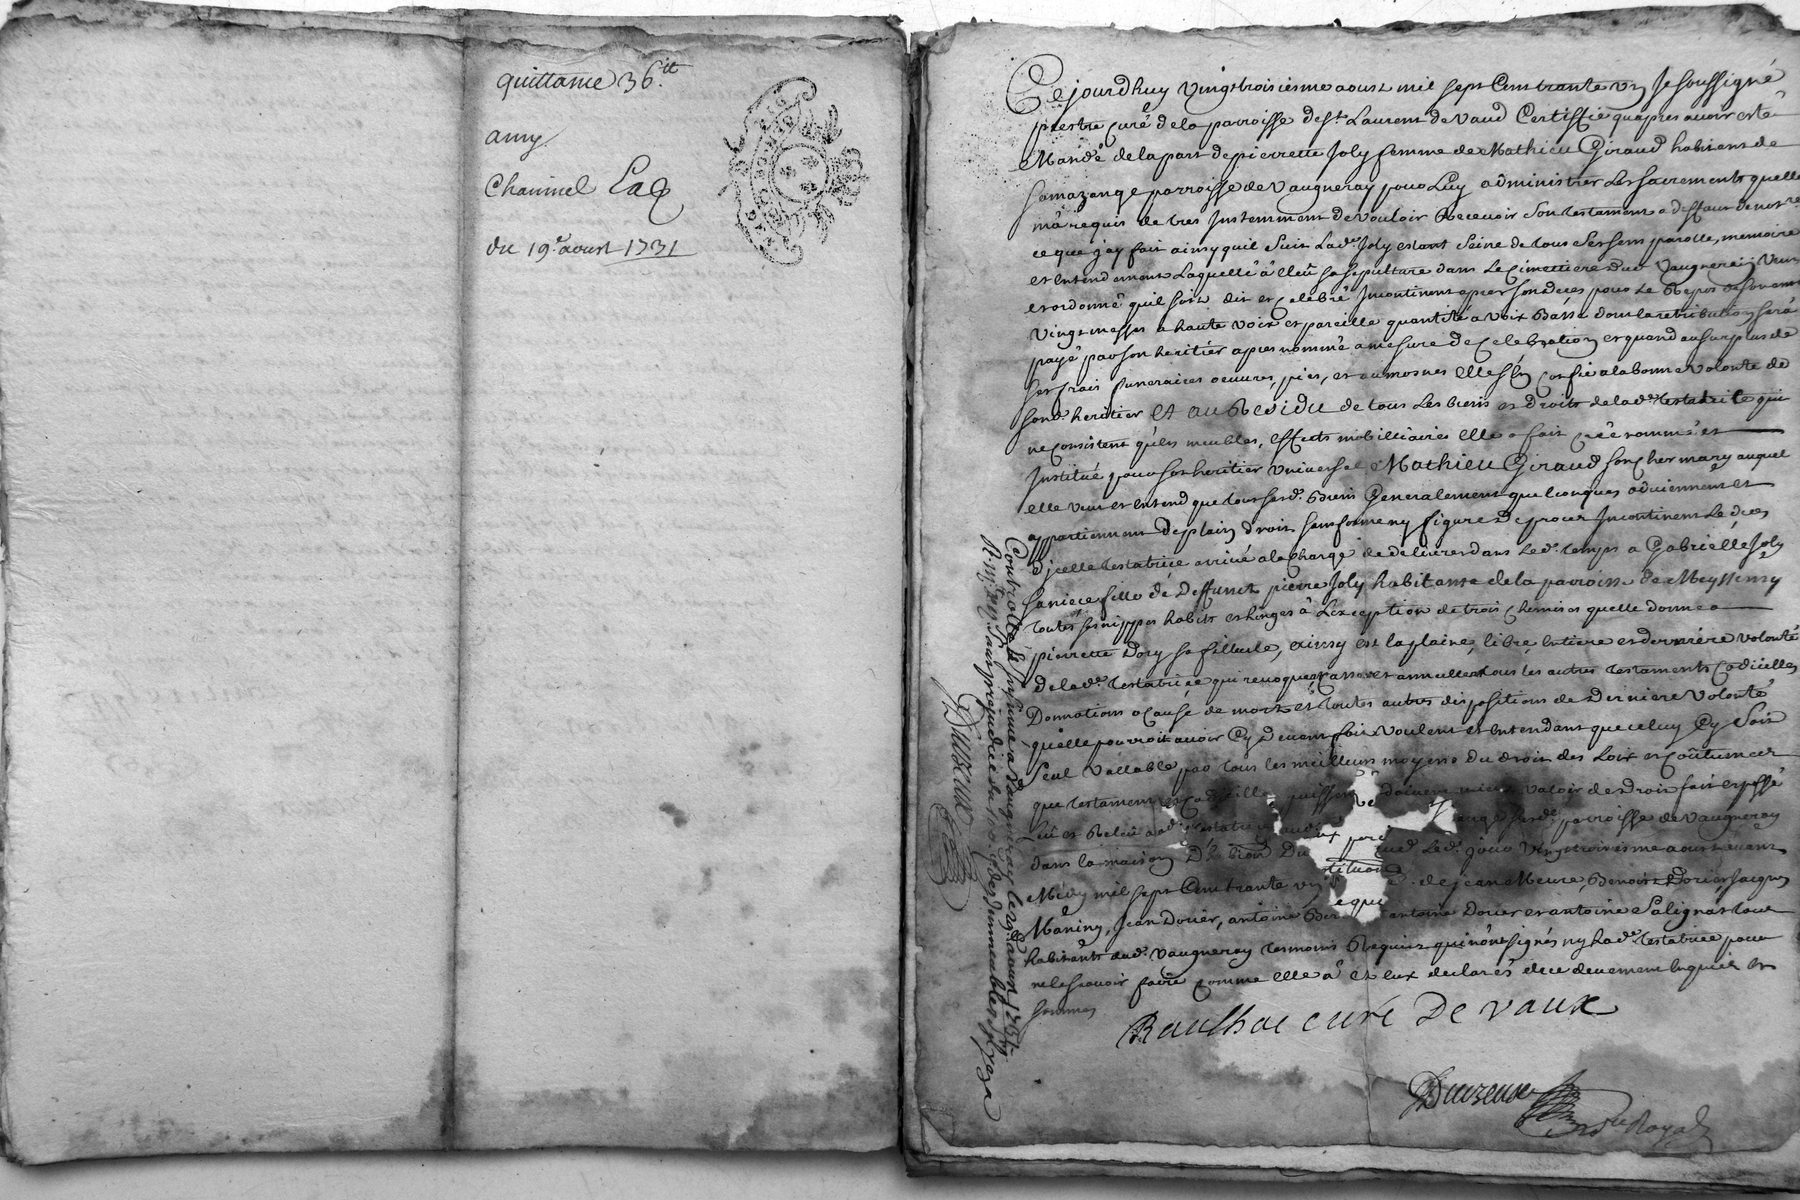 quittance 36.ⁱᵗ
amy
Chaninel Lac
du 19.ᵉ aoust 1731
Cejourdhuy vingttroisiesme aoust mil sept Cent trante un Je soussigné
prestre curé de la parroisse de St. Laurent de Vaud Certiffie quapres avoir esté
Mandé de la part de pierrette Joly femme de Mathieu Giraud habitent de
parroisse de Vaugneray pour Luy administrer Les sacrements quelle
m'a requis de tres Instemment de vouloir Recevoir son testament a deffaut de not.re
ce que j'ay fait ainsy quil suit Lad.e Joly estant seine de tous ses sens parolle, memoire
et Entendement Laquelle a Eleu sa sepulture dans Le Cimettiere dud. Vaugneray Veut
et ordonne quil soit dit et Celebré Incontinent apres son deces pour Le Repos de son ame
Vingt messes a haute voix et pareille quantité a voix Basse dont la retribution sera
payé par son heritier apres nommé a mesure de Celebration et quand au surplus de
ses frais funeraires oeuvres, pies, et aumosnes Elle s'En Confie a la bonne volonté de
sond. heritier Et au Residu de tous Les biens et Droits de lad.e testatrice qui
ne consistent qu'En meubles, Effects mobilliaires Elle a fait créé nommé et
Institué pour son heritier universel Mathieu Giraud son Cher mary auquel
elle veut et entend que tous sesd. Biens Generalement quelconques adviennent et
appartiennent de plain droit sans forme ny figure de proces Incontinent Le deces
d'icelle testatrice arrivé a la Charge de delivrer dans Led. temps a Gabrielle Joly
sa niece fille de Deffunct pierre Joly habitante de la parroisse de Meyssimy
toutes ses nippes habits et linges à L'exception de trois Chemises quelle donne a
pierrette Dory sa filleule, ainsy est la plaine, libre, Entiere et derniére volonté
de lad.e testatrice qui revoque, casse et annulle tous les autres testaments Codicilles
Donnations a cause de mort et toutes autres dispositions de Derniere volonté
qu'elle pourroit avoir Cy Devant fait voulent et Entendant que celuy Cy soit
seul vallable par tous les meilleurs moyens du droit des Loix et coûtumes
que testament et Codicille puissent doivent mieux valoir de droit fait et passé
leû et Releû a lad.e testatrice parroisse de Vaugneray
dans la maison D'h Led. jour Vingttroisiesme aoust avant
Midy mil sept Cent trante un de jean Meure, Benoist Dorier, Jacques
Maniny, Jean Dorier, antoine antoine Dorier et antoine Salignat tous
habitants dud. Vaugneray tesmoins Requis qui n'ont signés ny lad.e testatrice pour
ne le sçavoir faire comme elle a et eux declarés de ce deuement Enquis et
sommes
Baulhac curé De vaux
Duvzeux
N.re Royal
Controllé & Insinué a Vaugneray le 29 aoust 1731
R. sans prejudice du des Immeubles
Duvzeux